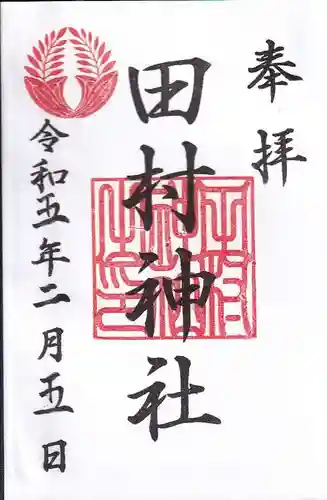 奉拝
田村神社
令和五年二月五日